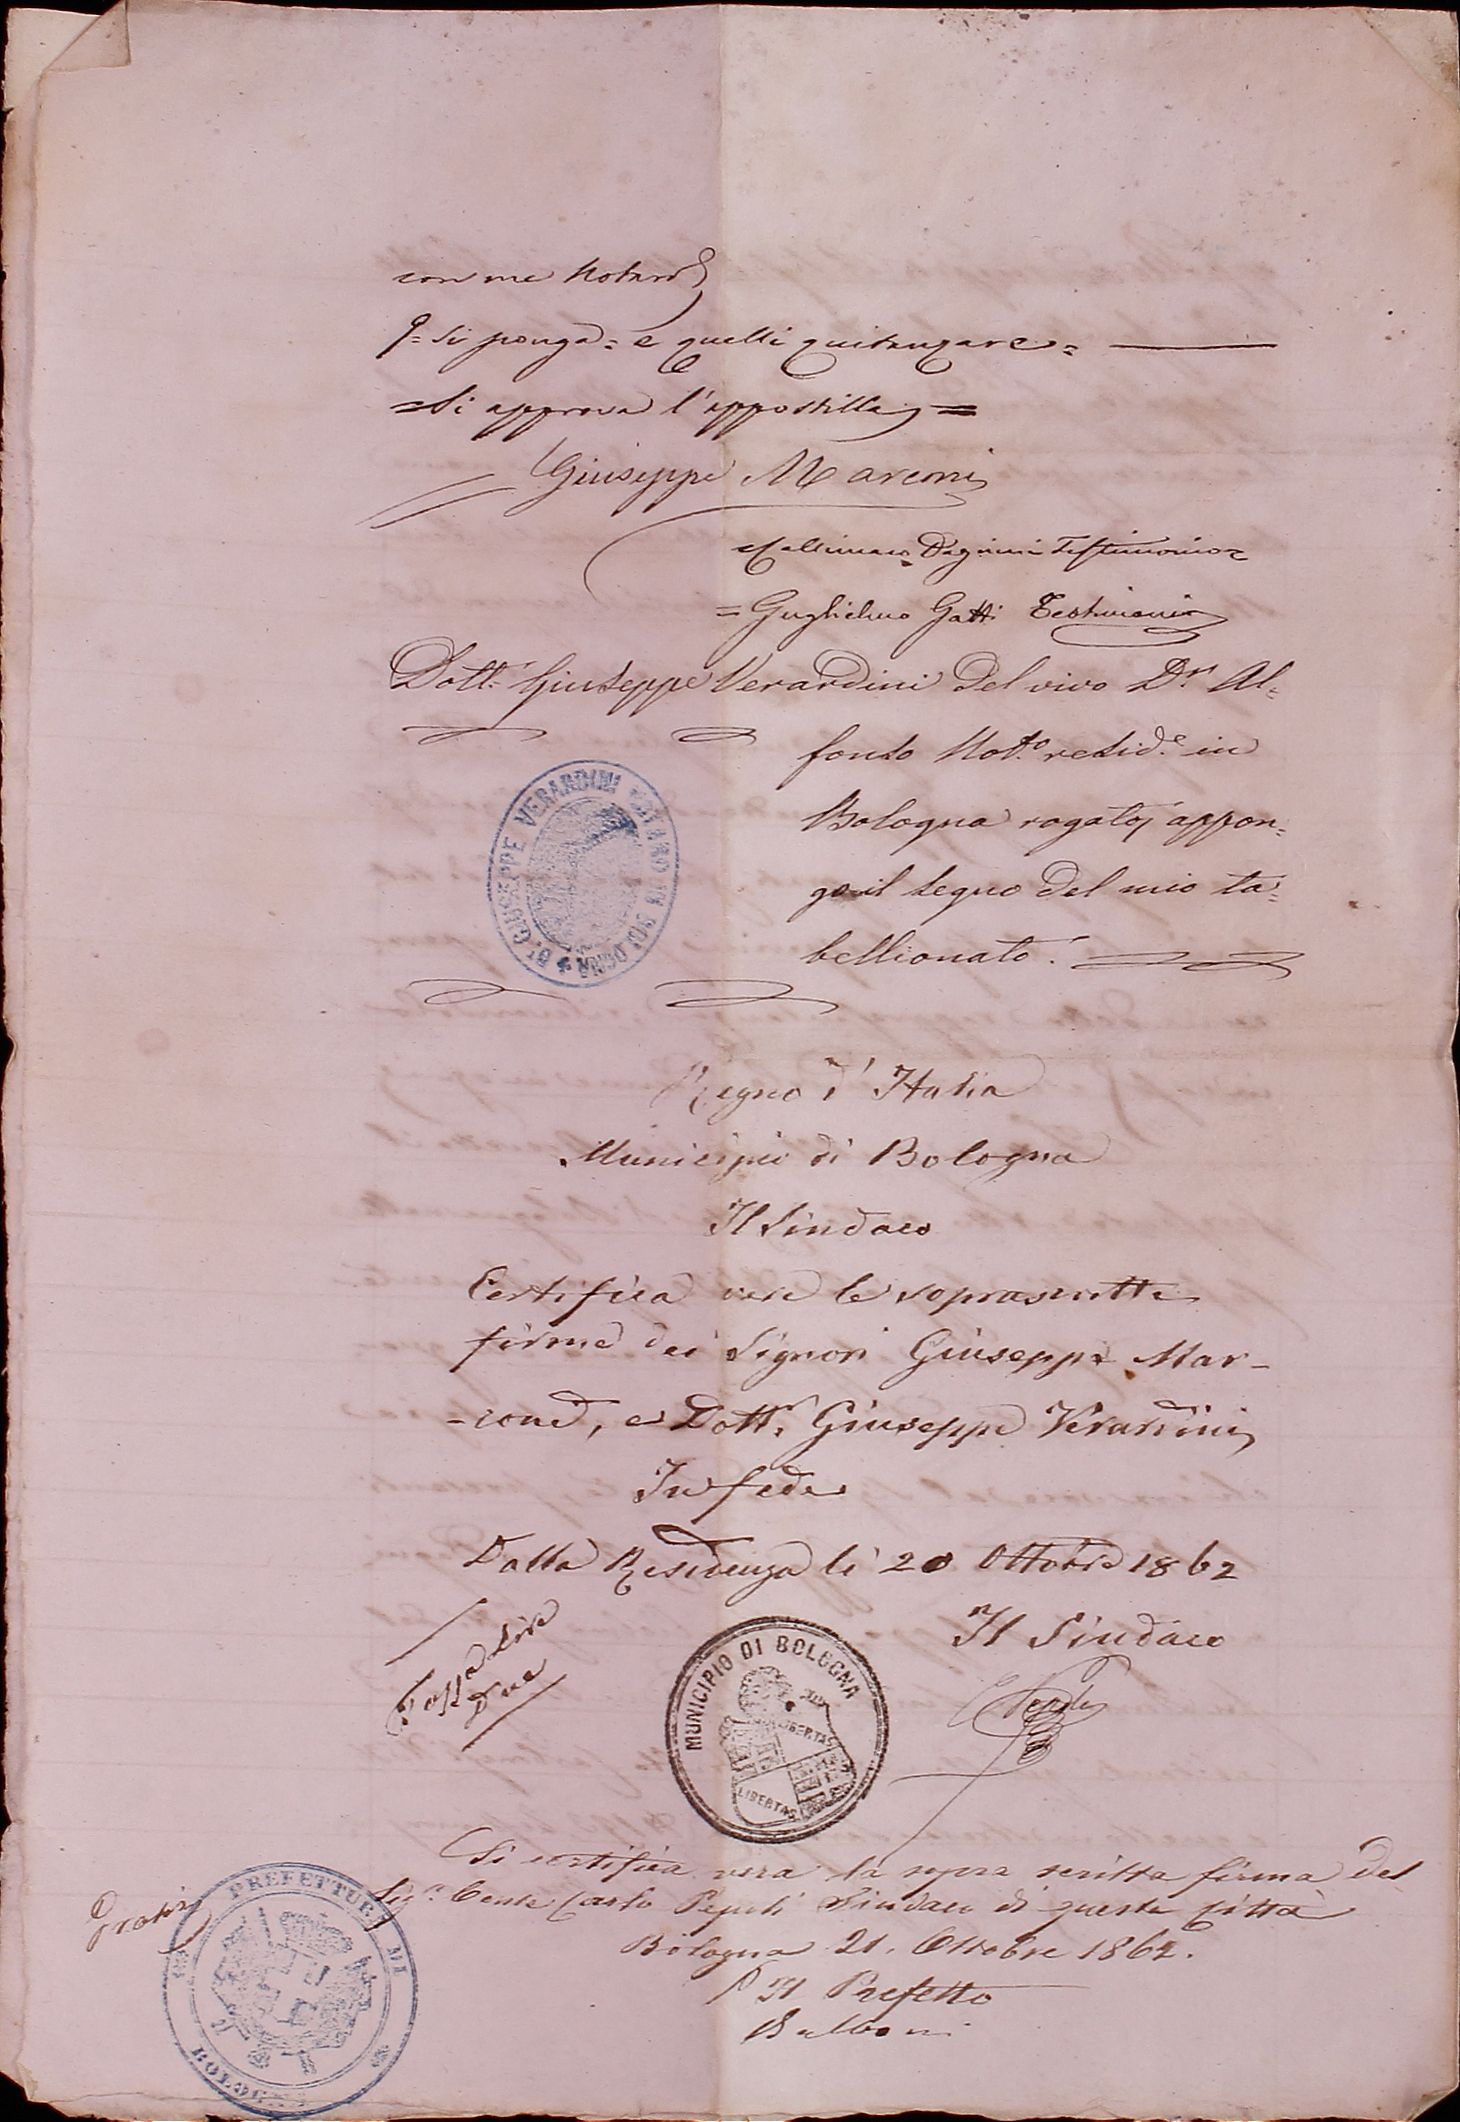 con me Notaro
P= si ponga = e quelli quitanzare =
= Si approva l'appostilla =
Giuseppe Marconi
Callimaco Dagnini Testimonio
= Guglielmo Gatti Testimonio
Dott. Giuseppe Verardini del vivo Dr. Al=
fonso Not.o resid.e in
Bologna rogato, appon=
go il segno del mio ta=
bellionato.
Dr. GIUSEPPE VERARDINI NOTARO IN BOLOGNA
Regno d'Italia
Municipio di Bologna
Il Sindaco
Certifica vere le soprascritte
firme dei Signori Giuseppe Mar-
-coni, e Dottr. Giuseppe Verardini
In fede
Dalla Residenza li 20 Ottobre 1862
Il Sindaco
C Pepoli
Tassa Lire
Due
MUNICIPIO DI BOLOGNA
LIBERTAS
LIBERTAS
Si certifica vera la sopra scritta firma del
Sig.r Conte Carlo Pepoli Sindaco di questa Città
Bologna 21. Ottobre 1862.
P Il Prefetto
Gratis
PREFETTURA DI
BOLOGNA